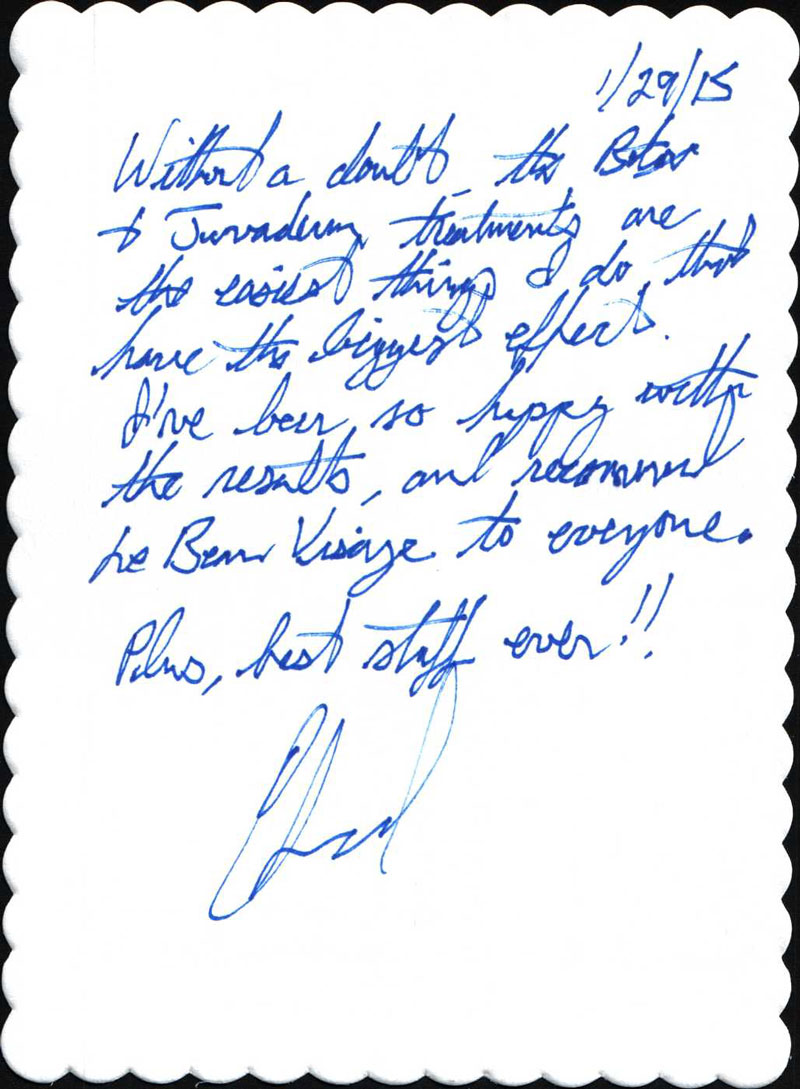 1/29/15
Without a doubt, the Botox
+ Juvaderm treatments are
the easiest things I do that
have the biggest effect.
I've been so happy with
the results, and recommend
Le Beau Visage to everyone.
Plus, best staff ever!!